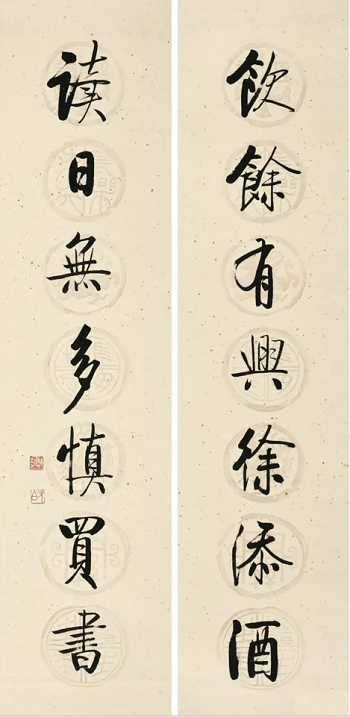 飲餘有興徐添酒
讀日無多慎買書